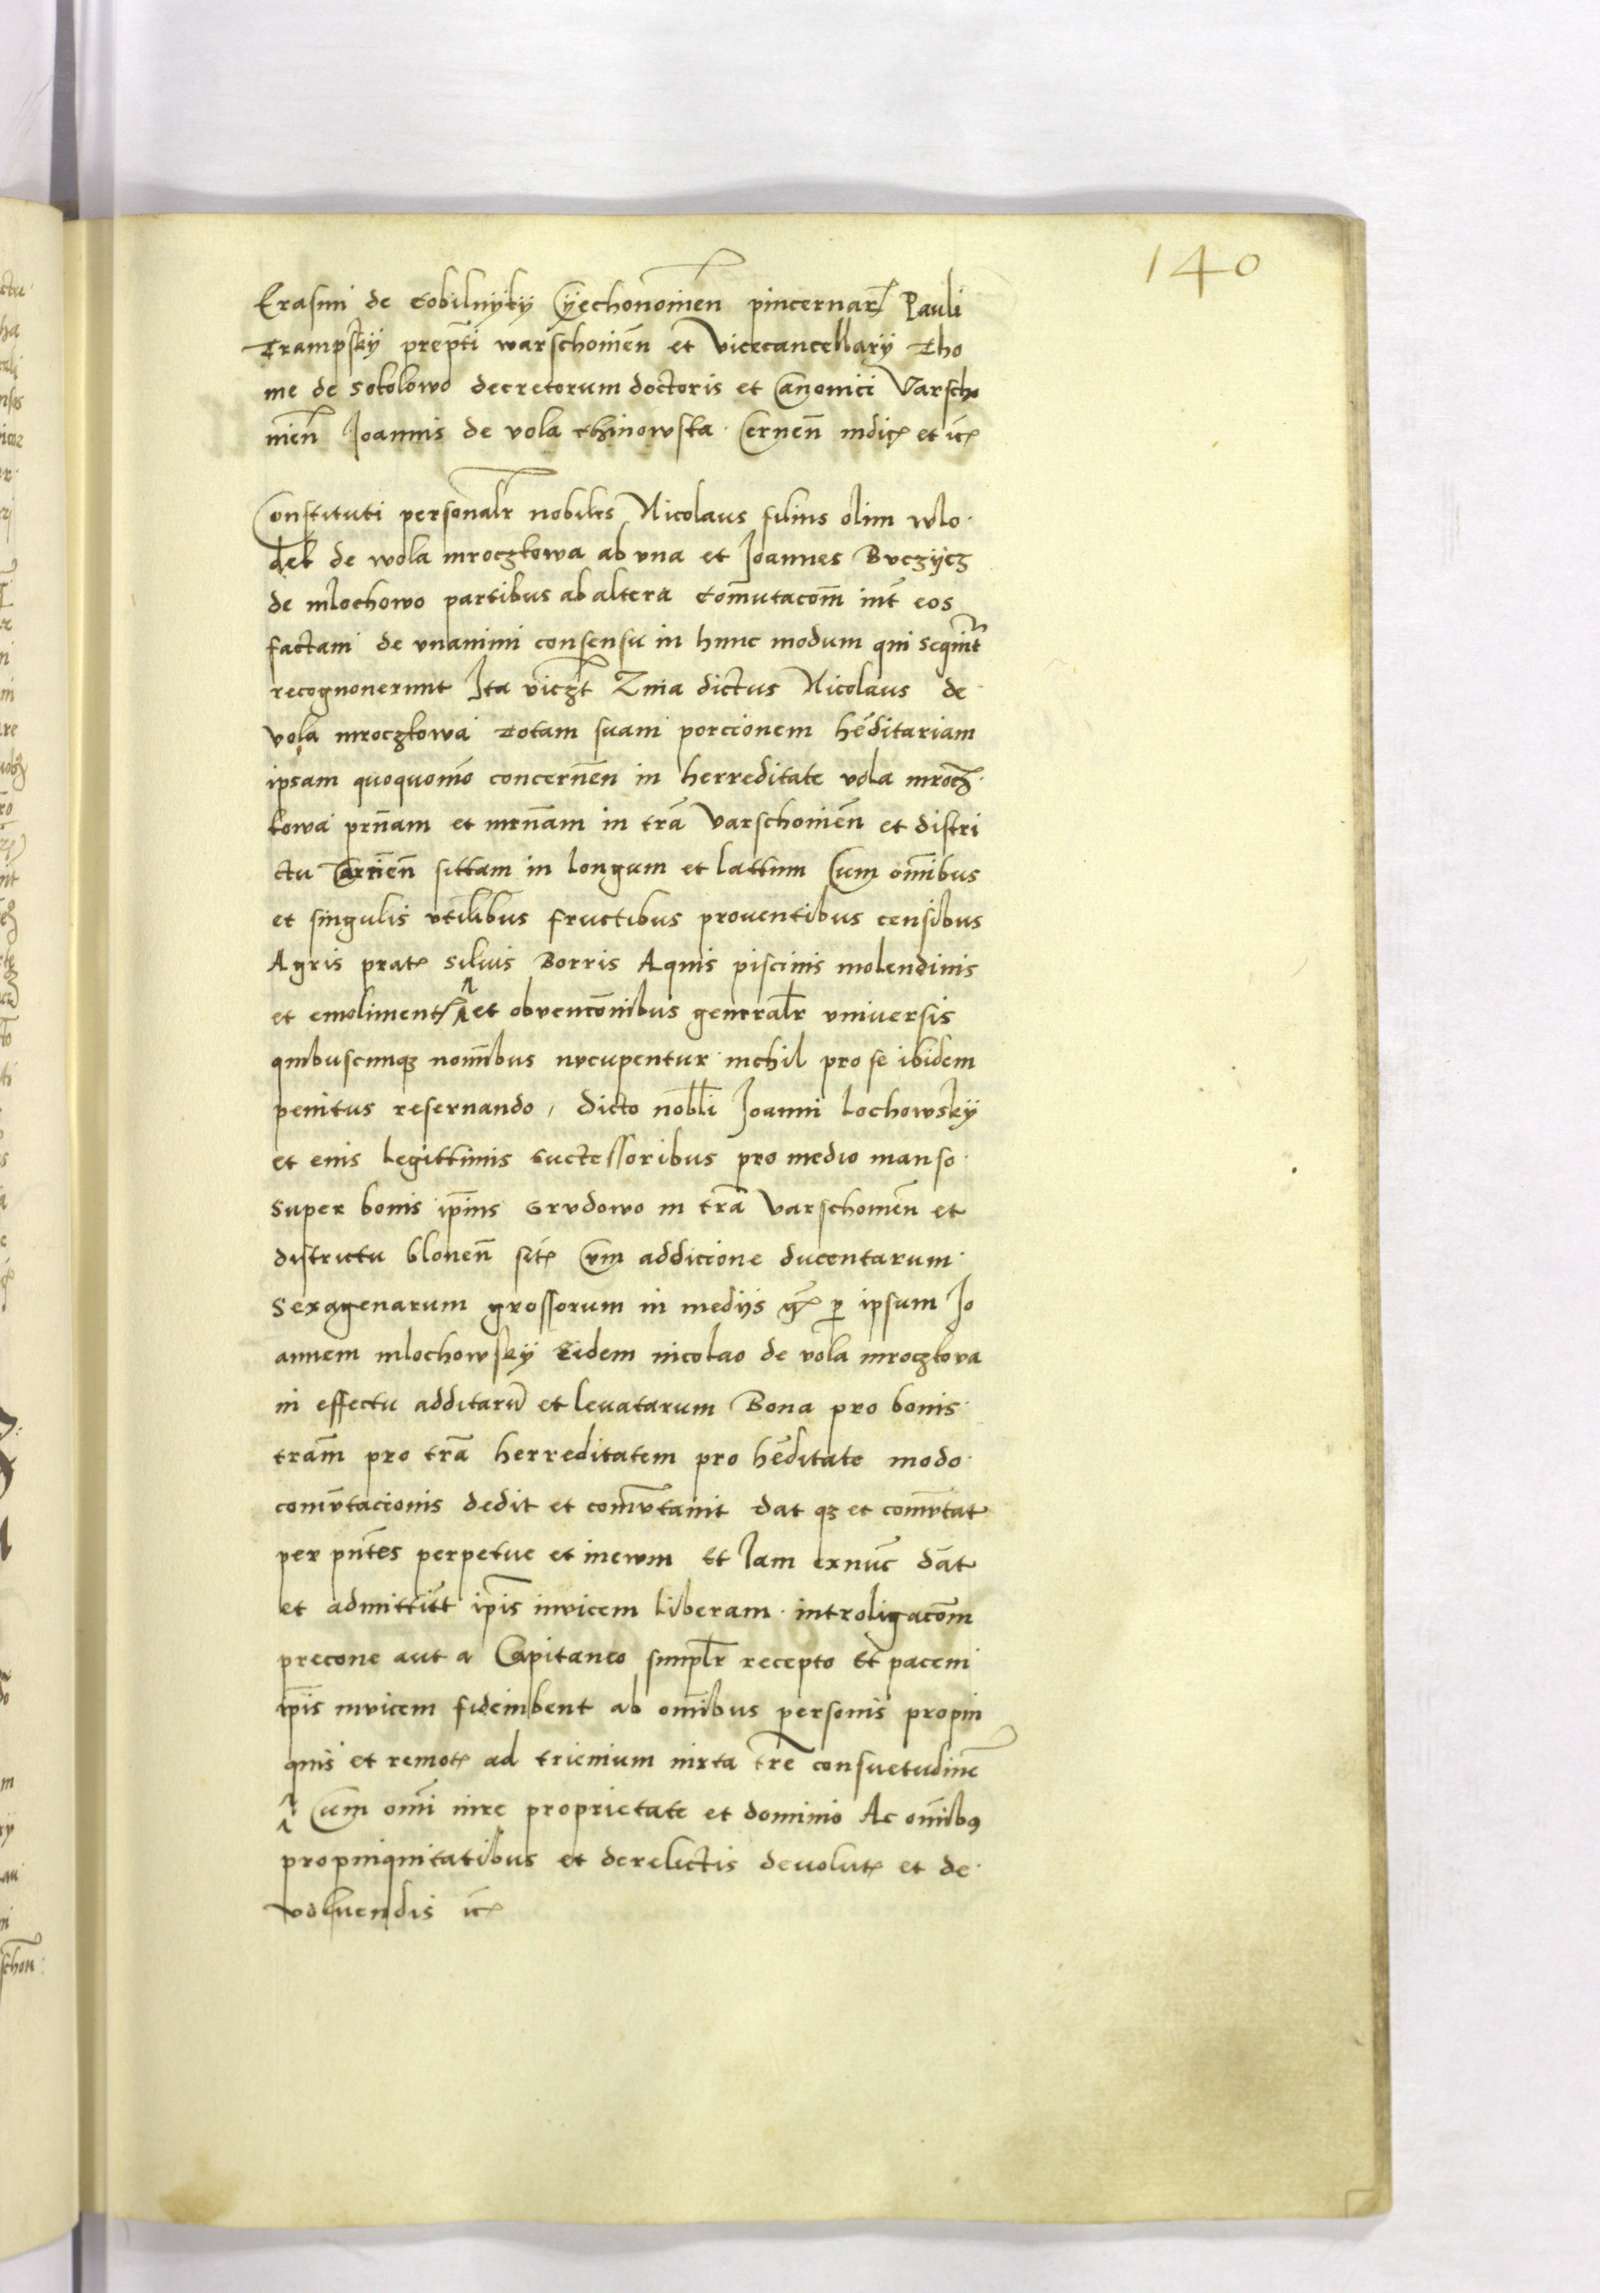 140
Erasmi de Cobilnyky Cyechonomien̄ pincernar͛ Pauli
Trampsky prep̄ti warschomien̄ et Vicecancellarij Tho
me de sokolowo decretorum doctoris et Canonici Varscho
nien̄ Joannis de vola Chinowska Cernen̄ indic͛ et ic͛
Constituti personalr̄ nobiles Nicolaus filius olim wlo
dek de wola mroczkowa ab vna et Joannes Bvczycz
de mlochowo partibus ab altera Com̄utacoм̄ int̄ eos
factam de vnanimi consensu in hunc modum qui sequit̄
recognouerunt Ita vicz̄t Zma dictus Nicolaus de
vola mroczkowa totam suam porcionem hēditariam
ipsam quoquomō concernēn in herreditate vola mrocz
kowa prn̄am et mrn̄am in trā Varschomien̄ et distri
ctu Tarn̄en̄ sittam in longum et lattum Cum om̄ibus
et singulis vtilibus fructibus prouentibus censibus
Agris prat͛ siluis Borris Aquis piscinis molendinis
et emoliment͛ et obuencōnibus generalr̄ vniuersis
quibuscunq3 nom̄ibus nvcupentur nichil pro se ibidem
penitus reseruando, dicto nob̄li Joanni Lochowsky
et eius legittimis Suctessoribus pro medio manso
super bonis ip̄ius Grvdowo in trā Varschomien̄ et
districtu blonen̄ sit͛ cvm addicione ducentarum
Sexagenarum grossorum in medijs g͛ p ipsum Jo
annem mlochowsky Eidem nicolao de vola mroczkova
in effectu additarū et leuatarum Bona pro bonis
tram̄ pro trā herreditatem pro hēditate modo
com̄vtacionis dedit et com̄vtauit dat q3 et com̄vtat
per pn̄tes perpetue et inewm Et Iam exnuc̄ dāt
et admittūt ip̄is invicem liberam introligacom̄
precone aut a Capitaneo simplr̄ recepto Et pacem
ip̄is invicem fideiubent ab om̄ibus personis propin
quis et remot͛ ad trienium iuxta trē consuetudinē
Cum om̄i iure proprietate et dominio Ac om̄ib9
propinquitatibus et derelictis deuolut͛ et de
voluendis ic͛